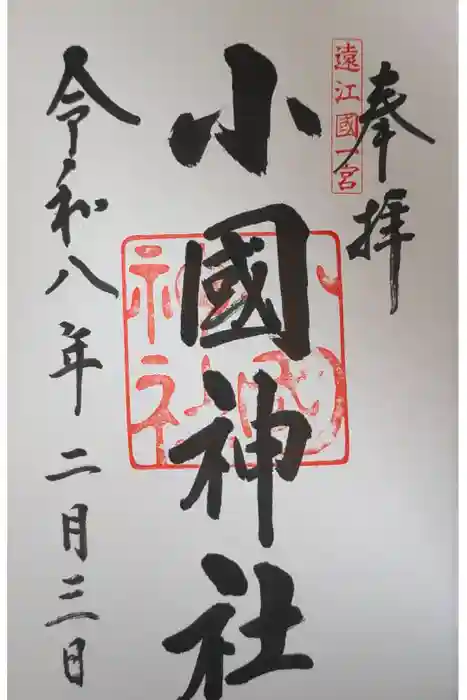 奉拝
遠江國一宮
小國神社
小國神社
令和八年二月三日